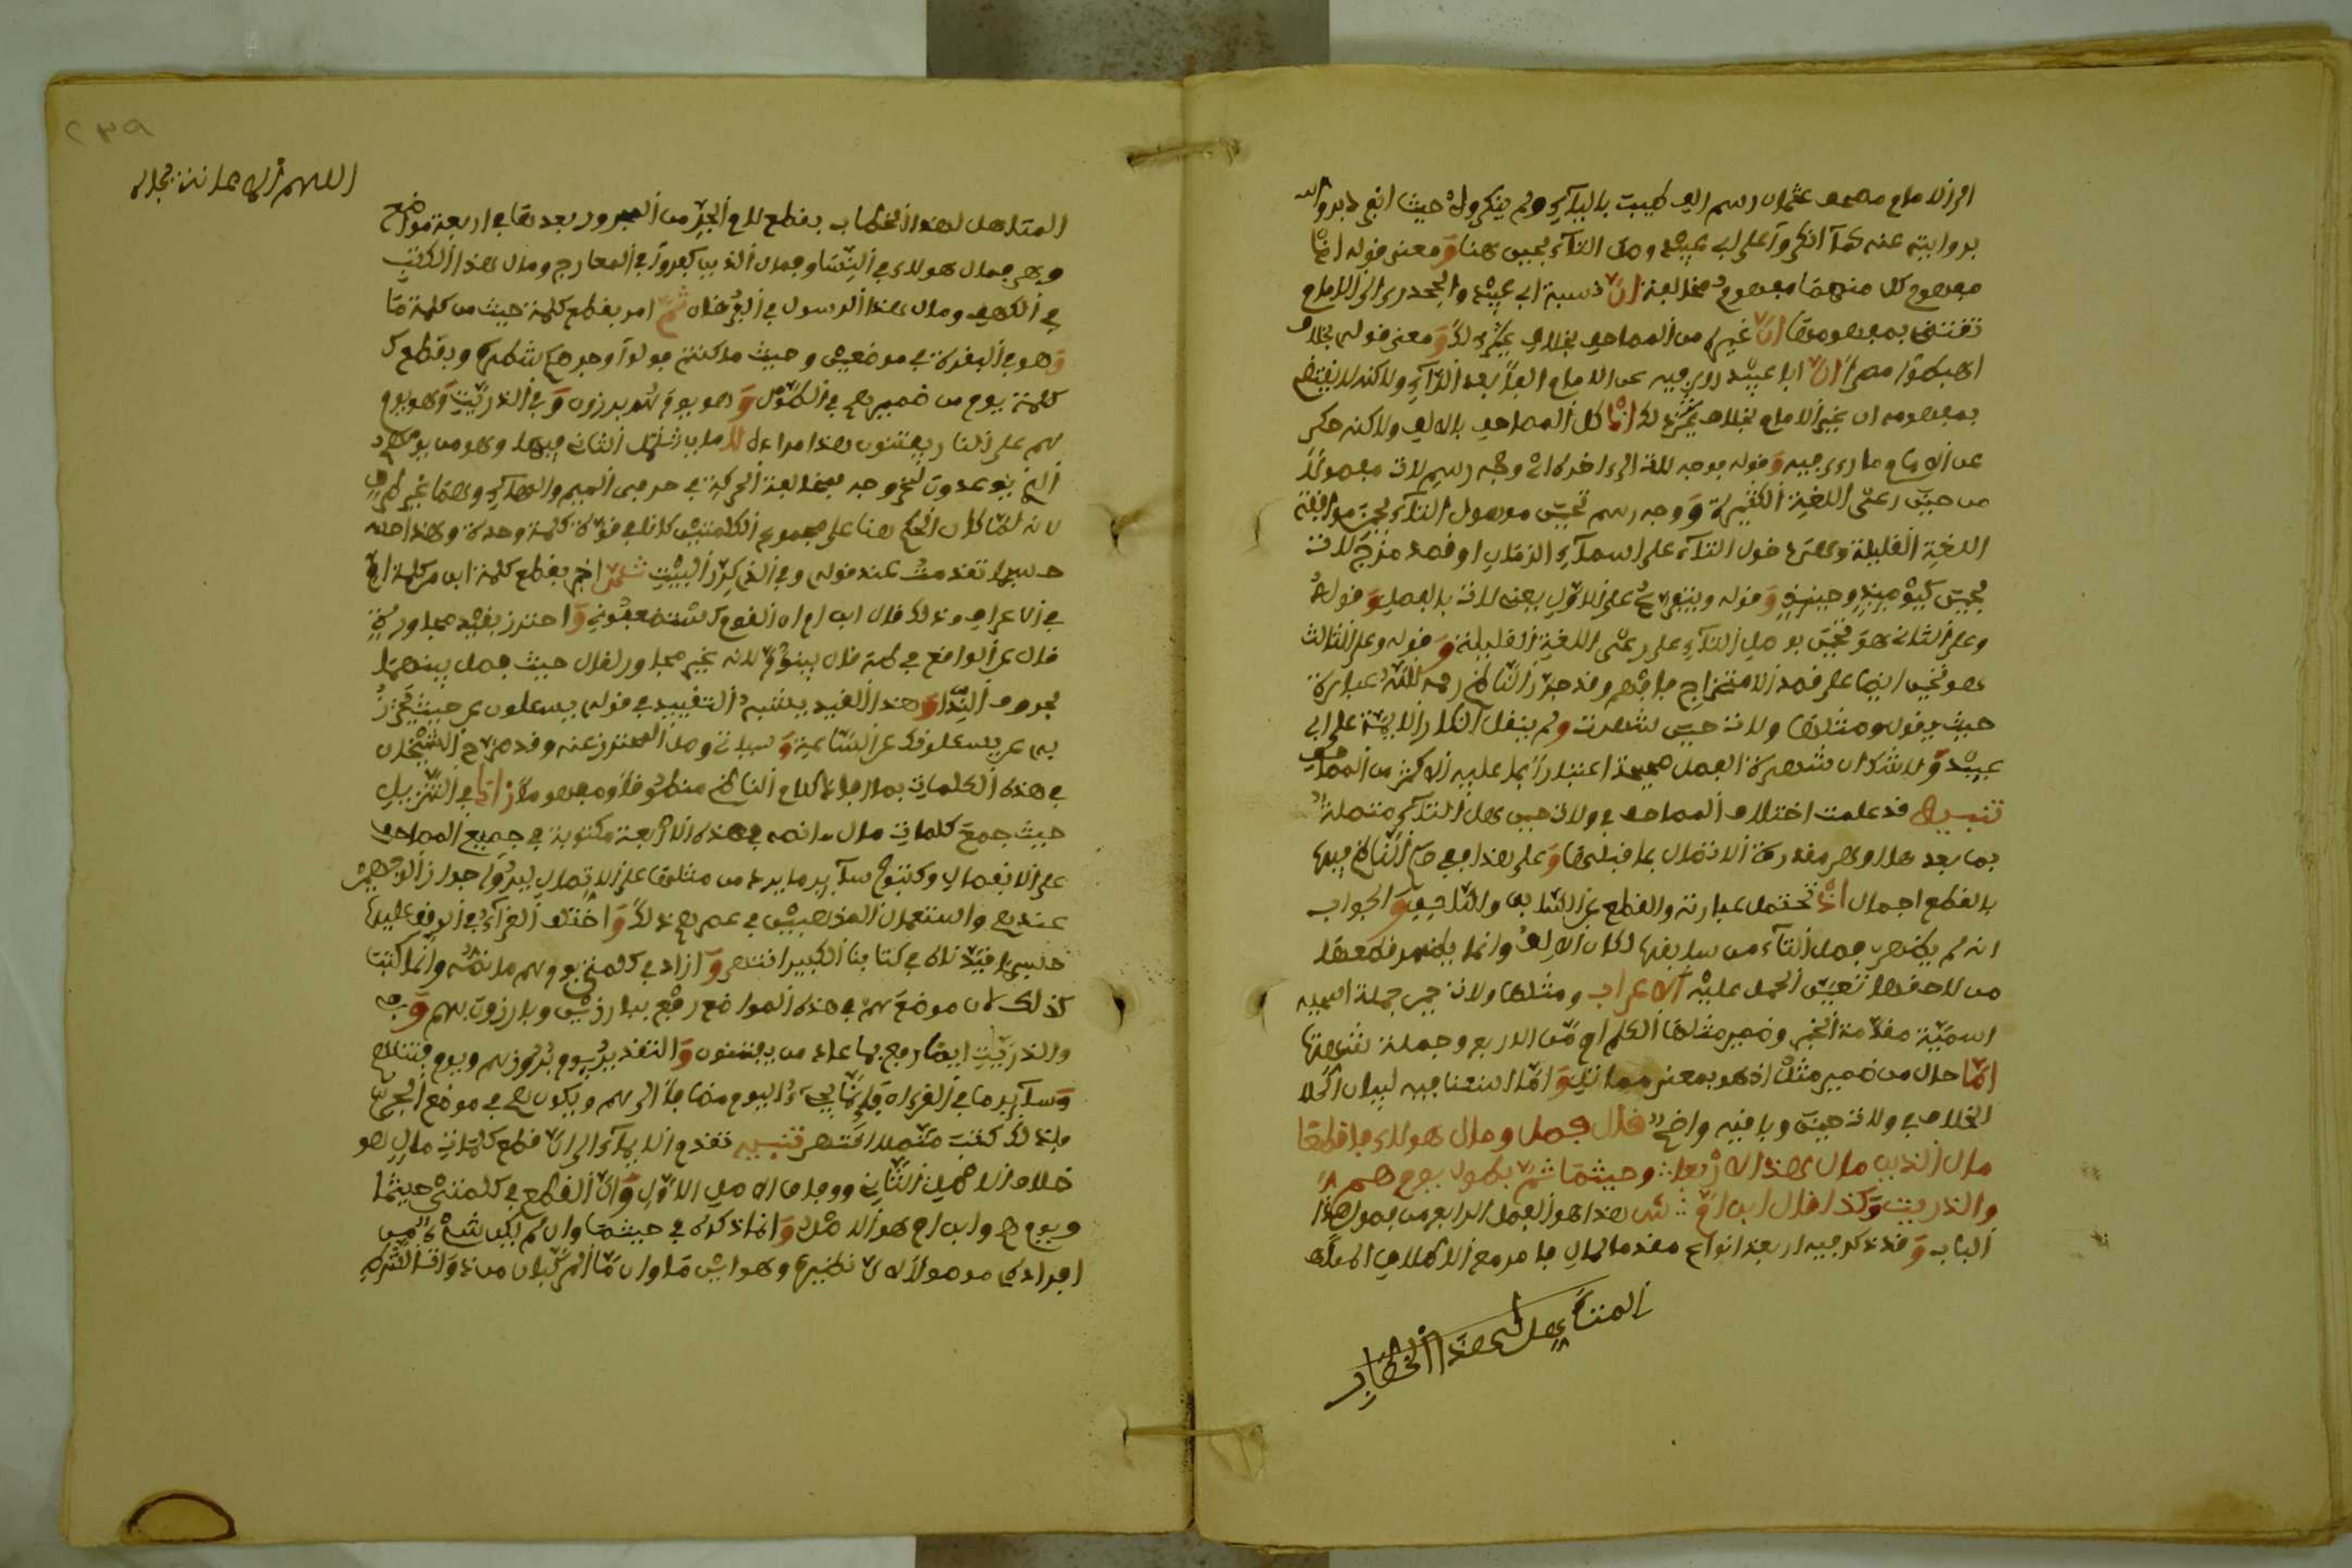 الى الامام مصحف عثمان رسم الف طيبت بالياء ولم ينكروا حيث انفرد
بروايته عنه كما انكروا على ابي عبيد وصل التاء بحين هنا ومعنى قوله انما
مفهوم كل منهما مفهوم مخالفة ان نسبة ابي عبيد والجحدري الى الامام
تقتضي بمفهومها ان غيره من المصاحف بخلاف ذلك ومعنى قوله بخلاف
اهبطوا مصرا ان ابا عبيد روى فيه عن الامام الفا بعد الراء ولاكنه لا يقتضي
بمفهومه ان غير الامام بخلاف ذلك اذ كل المصاحف بالالف ولاكنه حكى
عن الامام ما رءى فيه وقوله يوجه للغة الى اخره اي وجه رسم لات مفصولا
من حين رعى اللغة الكثيرة ووجه رسم تحين موصول التاء بحين موافقة
اللغة القليلة وهي دخول التاء على اسماء الزمان او قصد مزج لات
بحين كيومئذ وحينئذ وقوله وينبني على الاول يعني لات بالفصل وقوله
وعلى الثاني هو تحين بوصل التاء على رعى اللغة القليلة وقوله وعلى الثالث
هو تحين ايضا على قصد الامتزاج فافهم وقد حرر الناظم رحمه الله عبارته
حيث يقول ومثلها ولات حين شهرت ولم ينقل انكار الايمة على ابي
عبيد ولا شك ان شهرة الفصل صحيحة اعتبارا بما عليه الاكثر من المصاحف
تنبيه قد علمت اختلاف المصاحف في ولات حين هل التاء متصلة
بما بعدها او هي مقدرة الاتصال بما قبلها وعلى هذا ففي كلام الناظم فيها
بالقطع اجمال اذ تحتمل عبارته والقطع عن السابق واللاحق والجواب
انه لم يظهر فصل التاء من سابقها لكان الالف وانما يظهر قطعها
من لاحقها فتعين الحمل عليه الاعراب ومثلها ولات حين جملة اسمية
اسمية مقدمة الخبر وضمير مثلها للكلم اي من الاربع وجملة شهرتها
اما حال من ضمير مثل اذ هو بمعنى مماثل واما استئنافية لبيان الخلا
الخلاف في ولات حين وباقيه واضح قال فصل ومال هولاء فاقطعا
مال الذين مال هذا الاربعا وحيثما ثم بطول يوم هم
والذريت وكذا قال ابن ام ش هذا هو الفصل الرابع من فصول هذا
الباب وقد ذكر فيه اربعة انواع مقدما لمال فامر مع الاطلاق
المتاهل لهذا الخطاب
اللهم
المتاهل لهذا الخطاب بقطع لام الجر من المجرور بعدها في اربعة مواضع
وهي فمال هولاء في النسا وفمال الذين كفروا في المعارج ومال هذا الكتب
في الكهف ومال هذا الرسول في الفرقان ثم امر بقطع كلمة حيث من كلمة ما
وهو في البقرة في موضعين وحيث ما كنتم فولوا وجوهكم شطره وبقطع
كلمة يوم من ضمير هم في الطول وهو يوم هم برزون وفي الذريت وهو يوم
هم على النار يفتنون هذا مراده
الذي يوعدون لخروجه بمخالفة الحركة في حرفي الميم والهاء
لانه لما كان الحكم هنا على مجموع الكلمتين كانا في قوة كلمة وحدة وهذا
حسبما تقدمت عند قوله وفي الذي كرر البيت ثم اخبر بقطع كلمة ابن من كلمة ام
في الاعراف وذلك قال ابن ام ان القوم استضعفوني واحترز بقيد مجاورة
قال عن الواقع في طه قال يبنؤم لانه غير مجاور لقال حيث فصل بينهما
بحرف الندا وهذا القيد يشبه التقييد في قوله يسئلون عن حيث تحرز
به عن يسئلونك عن الساعة وسياتي وصل المحترز عنه وقد صرح الشيخان
في هذه الكلمات بما افاده كلام الناظم منطوقا ومفهوما وزاد في التنزيل
حيث جمع كلمات مال ما نصه في هذه الاربعة مكتوبة في جميع المصاحف
على الانفصال وكتبوا ساير ما يرد من مثلها على الاتصال ليروا جواز الوجهين
عندهم واستعمال المذهبين في عصرهم ذلك واختلف القراء في الوقف عليها
حسبما قيدناه في كتابنا الكبير انتهى وزاد في كلمتي يوم هم ما نصه وانما كتبت
كذلك لان موضع هم في هذه المواضع رفع ببارزين وبارزون بهم
والذريت ايضا رفع بما عاد من يفتنون والتقدير يوم بروزهم ويوم فتنتهم
وساير ما في القرءان فانما يجيء اليوم مضافا الى هم ويكون هم في موضع الجر
فلذلك كتبت متصلا انتهى تنبيه تقدم الايماء الى ان قطع كلمات مال هو
خلاف الاصل الثاني ووفاق الاصل الاول وان القطع في كلمتي حيثما
ويوم هم وابن ام هو الاصل وانما ذكره في حيثما وان لم يكن شيء من
افراده موصولا لان نظيرها وهو اين ما وان ما المركبان من ذوات الشرط